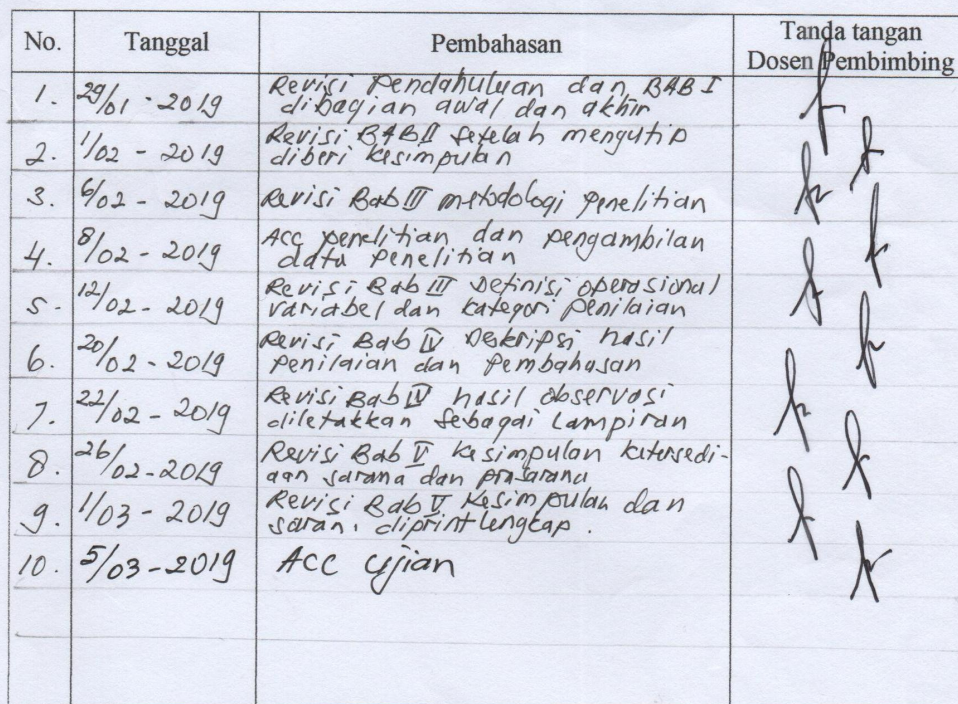 No. Tanggal Pembahasan Tanda tangan
Dosen Pembimbing
1. 29/01 - 2019 Revisi Pendahuluan dan BAB I
dibagian awal dan akhir
2. 1/02 - 2019 Revisi BAB II setelah mengutip
diberi kesimpulan
3. 6/02 - 2019 Revisi Bab III metodologi penelitian
4. 8/02 - 2019 Acc penelitian dan pengambilan
data penelitian
5. 12/02 - 2019 Revisi Bab III Definisi operasional
variabel dan kategori penilaian
6. 20/02 - 2019 Revisi Bab IV Deskripsi hasil
penilaian dan Pembahasan
7. 22/02 - 2019 Revisi Bab IV hasil observasi
diletakkan sebagai Lampiran
8. 26/02 - 2019 Revisi Bab V kesimpulan ketersedi-
aan sarana dan prasarana
9. 1/03 - 2019 Revisi Bab V Kesimpulan dan
saran. diprint lengkap.
10. 5/03 - 2019 ACC Ujian